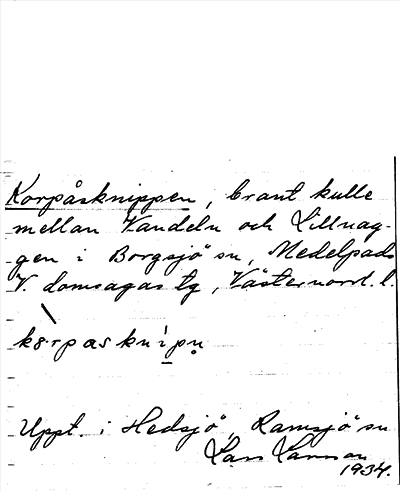 Korpåsknippen, brant kulle
mellan Vandeln och Lillnag-
gen i Borgsjö sn, Medelpads
V. domsagas tg, Västernorrl. l.
Uppt. i Hedsjö, Ramsjö sn
Lars Larsson
1934.